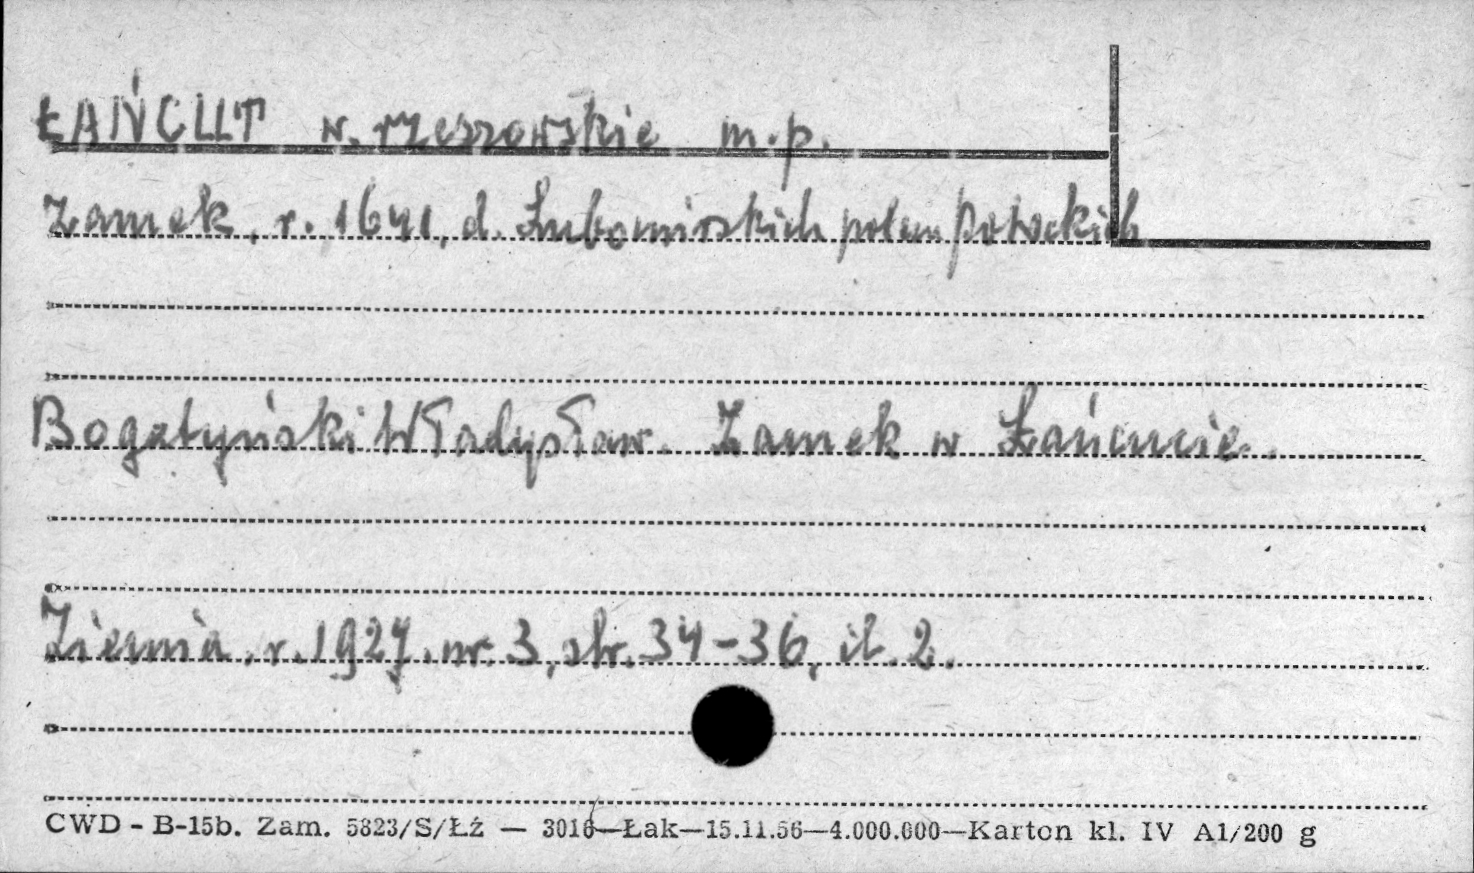 ŁAŃCUT w. rzeszowskie m.p.
Zamek, r. 1641, d. Lubomirskich potem Potockich
Bogatyński Władysław. Zamek w Łańcucie.
Ziemia, r. 1927. nr. 3, str. 34-36, il. 2.
CWD - B-15b. Zam. 5823/S/Łź — 3016—Łak—15.11.56—4.000.000—Karton kl. IV A1/200 g